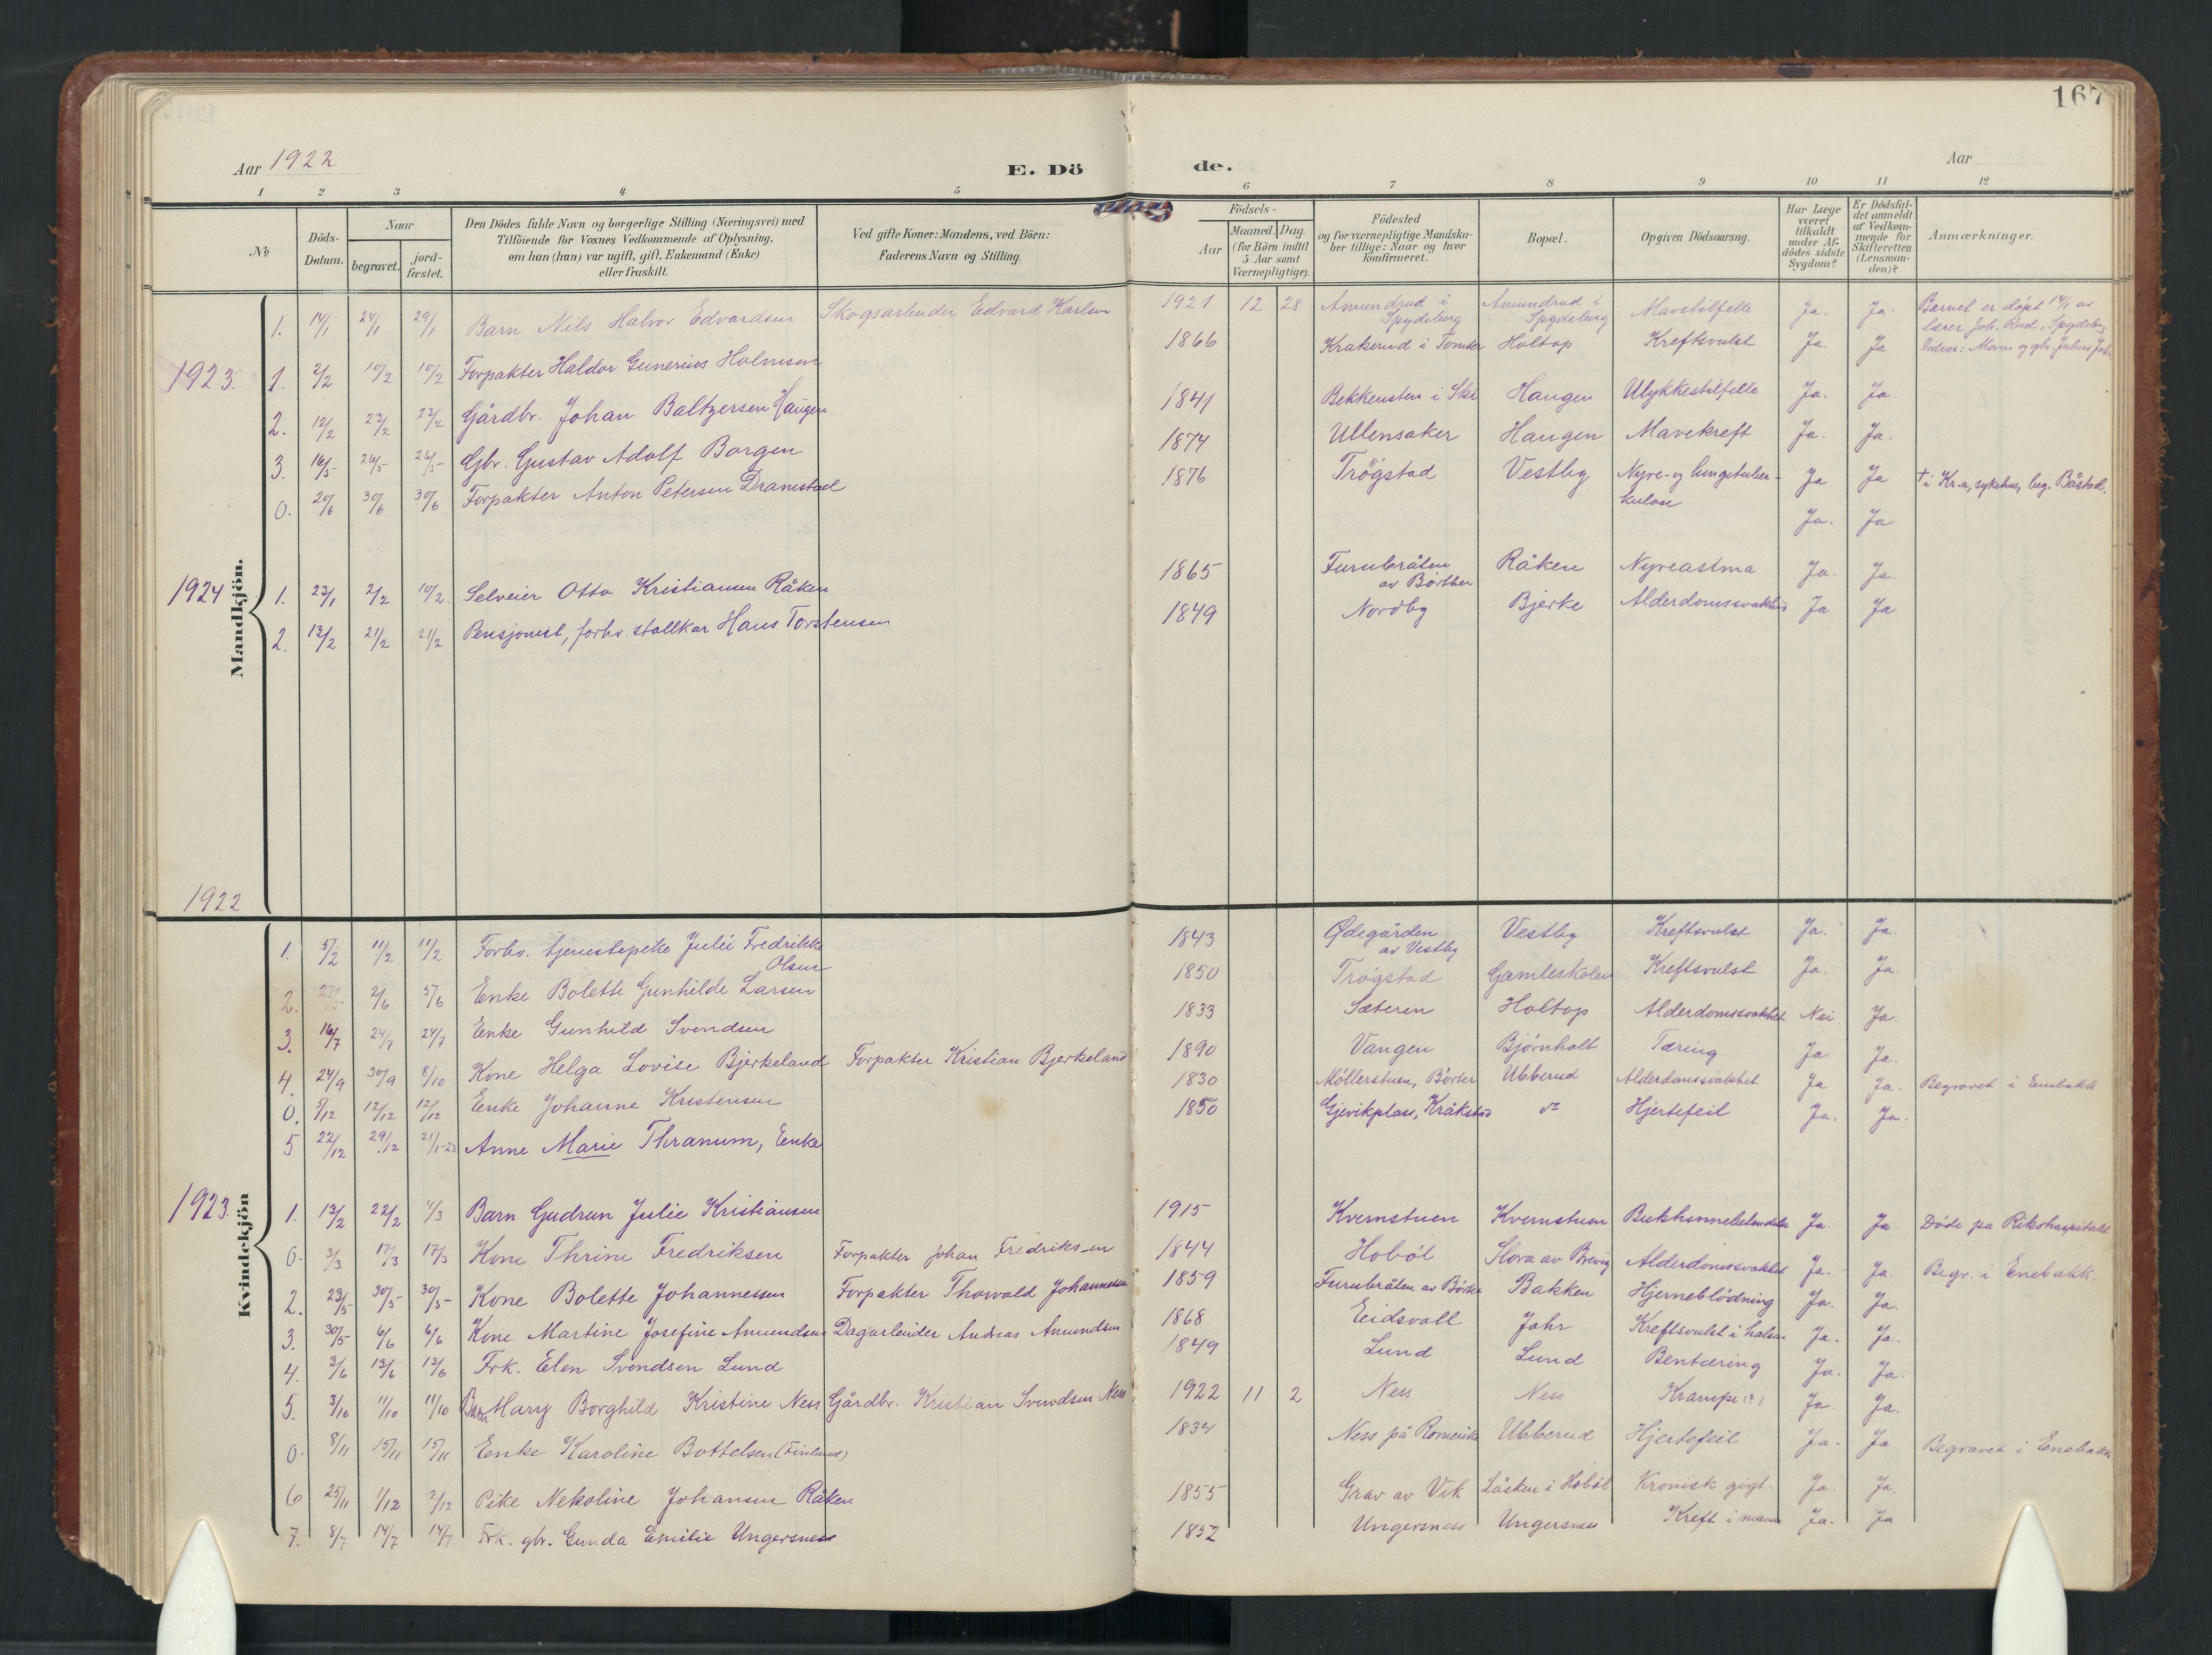 167
Aar 1922
E. Dö
de.
Aar
1 2 3 4 5 6 7 8 9 10 11 12
No
Döds-Datum.
Naar
begravet.
jord-fæstet.
Den Dödes fulde Navn og borgerlige Stilling (Næringsvei) med
Tilföiende for Voxnes Vedkommende af Oplysning,
om han (hun) var ugift, gift, Enkemand (Enke)
eller fraskilt.
Ved gifte Koner: Mandens, ved Börn:
Faderens Navn og Stilling.
Födsels-
Aar
Maaned. Dag.
(for Börn indtil
5 Aar samt
Værnepligtige).
Födested
og for værnepligtige Mandska-
ber tillige: Naar og hvor
konfirmeret.
Bopæl.
Opgiven Dödsaarsag.
Har Læge
været
tilkaldt
under Af-
dödes sidste
Sygdom?
Er Dödsfal-
det anmeldt
af Vedkom-
mende for
Skifteretten
(Lensman-
den)?
Anmærkninger.
Mandkjön.
1. 14/1 24/1 29/1 Barn Nils Halvor Edvardsen Skogsarbeider Edvard Karlsen 1921 12 28 Amundrud i Spydeberg Amundrud i Spydeberg Mavetilfelle Ja. Ja. Barnet er döpt 14/1 av
lærer Joh. Rud, Spydeberg
1923. 1. 2/2 10/2 10/2 Forpakter Haldor Gunerius Holmsen 1866 Krakerud i Tomter Holtop Kreftsvulst Ja. Ja
2. 12/2 23/2 23/2 Gårdbr. Johan Baltzersen Haugen 1841 Bekkensten i Ski Haugen Ulykkestilfelle Ja. Ja.
3. 16/5 26/5 26/5 Gbr. Gustav Adolf Borgen 1874 Ullensaker Haugen Mavekreft Ja. Ja.
0. 20/6 30/6 30/6 Forpakter Anton Petersen Dramstad 1876 Trögstad Vestby Nyre- og lungetuber-
kulose Ja Ja † i Kr.a, sykehus, beg. Båstad.
Ja. Ja
1924 1. 23/1 2/2 10/2 Selveier Otto Kristiansen Råken 1865 Furubråten
av Börther Råken Nyreastma Ja. Ja.
2. 13/2 21/2 21/2 Pensjonist, forhv. stallkar Hans Torstensen 1849 Nordby Bjerke Alderdomssvakhed Ja Ja
1922
Kvindekjön
1. 5/2 11/2 11/2 Forhv. tjenestepike Julie Fredrikke
Olsen 1843 Ødegården
av Vestby Vestby Kreftsvulst Ja. Ja.
2. 2/6 5/6 Enke Bolette Gunhilde Larsen 1850 Trögstad Gamleskolen Kreftsvulst Ja. Ja.
3. 16/7 24/7 24/7 Enke Gunhild Svendsen 1833 Sæteren Holtop Alderdomssvakhet Nei Ja.
4. 24/9 30/9 8/10 Kone Helga Lovise Bjerkeland Forpakter Kristian Bjerkeland 1890 Vangen Björnholt Tæring Ja Ja.
0. 5/12 12/12 12/12 Enke Johanne Kristensen 1830 Möllerstuen, Börter Ubberud Alderdomssvakhet Ja Ja. Begravet i Enebakk
5 22/12 29/12 21/1-23 Anne Marie Thranum, Enke 1850 Gjevikplass, Kråkstad do Hjertefeil Ja. Ja.
1923. 1. 13/2 22/2 4/3 Barn Gudrun Julie Kristiansen 1915 Kvernstuen Kvernstuen Ja Ja Döde på Rikshospitalet
0. 3/3 17/3 17/3 Kone Thrine Fredriksen Forpakter Johan Fredriksen 1844 Hoböl Slora av Brevig Alderdomssvakhet Ja. Ja. Begr. i Enebakk.
2. 23/5 30/5 30/5 Kone Bolette Johannessen Forpakter Thorvald Johannessen 1859 Furubråten av Börter Bakken Hjerneblödning Ja. Ja.
3. 30/5 6/6 6/6 Kone Martine Josefine Amundsen Dagarbeider Andreas Amundsen 1868 Eidsvoll Jahr Kreftsvulst i halsen Ja. Ja.
4. 3/6 13/6 13/6 Frk. Elen Svendsen Lund 1849 Lund Lund Bentæring Ja. Ja.
5. 3/10 11/10 11/10 Barn Mary Borghild Kristine Ness Gårdbr. Kristian Svendsen Ness 1922 11 2 Ness Ness Krampe (?) Ja. Ja.
0. 8/11 15/11 15/11 Enke Karoline Bottelsen (Finland) 1834 Ness på Romerike Ubberud Hjertefeil Ja. Ja Begravet i Enebakk
6 25/11 1/12 2/12 Pike Nekoline Johansen Råken 1855 Grav av Vik Låsken i Hoböl Kronisk gigt. Ja. Ja.
7. 8/7 14/7 14/7 Frk. gbr. Gunda Emilie Ungersness 1852 Ungersness Ungersness Kreft i maven Ja. Ja